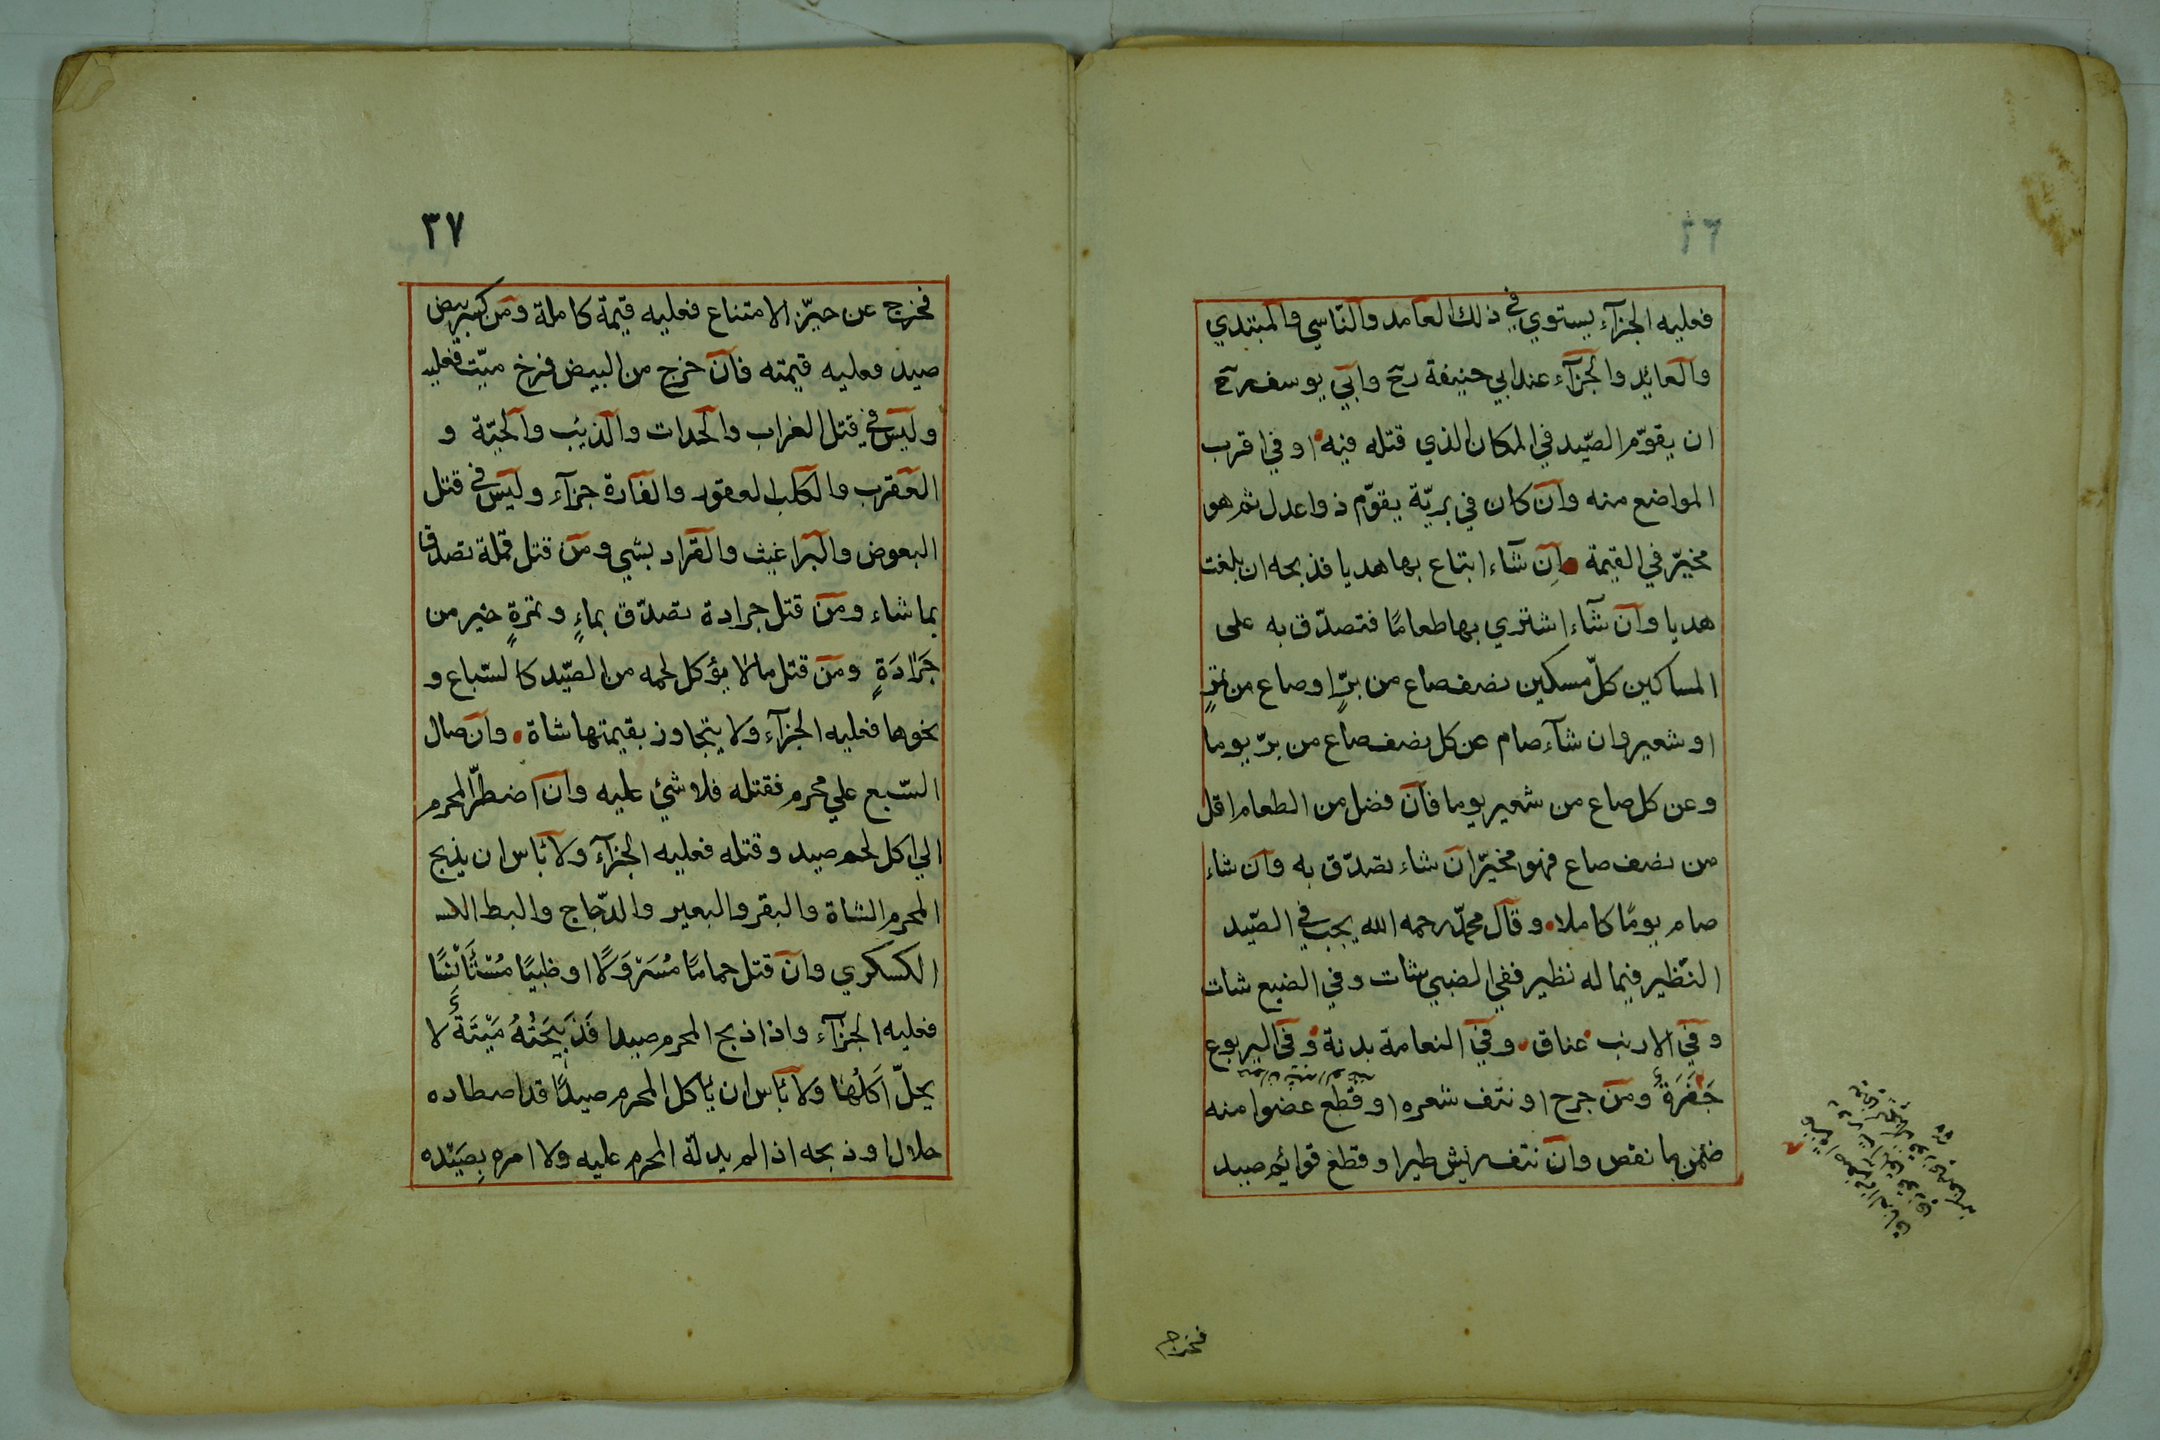 فعليه الجزآء يستوي في ذلك العامد والنّاسي والمبتدي
والعائد والجزآء عند ابي حنيفة رح وابي يوسف رح
ان يقوّم الصّيد في المكان الذي قتله فيه او في اقرب
المواضع منه وان كان في بريّة يقوّم ذوا عدل ثم هو
مخيّر في القيمة ان شآء ابتاع بها هديا فذبحه ان بلغت
هديا وان شآء اشتري بها طعامًا فتصدّق به على
المساكين كلّ مسكين نصف صاع من برٍّ او صاع من تمرٍ
او شعير وان شآء صام عن كل نصف صاع من برّ يوما
وعن كل صاع من شعير يوما فان فضل من الطعام اقل
من نصف صاع فهو مخيّر ان شاء تصدّق به وان شاء
صام يومًا كاملا وقال محمّد رحمه الله يجب في الصّيد
النّظير فيما له نظير ففي الضبي شات وفي الضبع شات
وفي الارنب عناق وفي النعامة بدنة وفي اليربوع
جَفْرَةٌ ومن جرح او نتف شعره او قطع عضوا منه
ضمن ما نقص وان نتف ريش طير او قطع قوائم صيد
فخرج
٣٧
فخرج عن حيّز الامتناع فعليه قيمة كاملة ومن كسر بيض
صيد فعليه قيمته فان خرج من البيض فرخ ميّت فعليه
وليس في قتل الغراب والحدات والذيب والحيّة و
العقرب والكلب العقور والفارة جزآء وليس في قتل
البعوض والبراغيث والقراد بشي ومن قتل قملة تصدق
بما شاء ومن قتل جرادة تصدّق بماءٍ وتمرةٍ خير من
جَرَادَةٍ ومن قتل مالا يؤكل لحمه من الصّيد كالسّباع و
نحوها فعليه الجزآء ولا يتجاوز بقيمتها شاة وان صال
السّبع علي محرم فقتله فلا شئ عليه وان اضطرّ المحرم
الي اكل لحم صيد وقتله فعليه الجزآء ولا بأس ان يذبح
المحرم الشاة والبقر والبعير والدّجاج والبط
الكسكري وان قتل حمامًا مُسَرْوَلًا او ظبيًا مُسْتَأْنَسًا
فعليه الجزآء واذا ذبح المحرم صيدا فَذَبِيحَتُهُ مَيْتَةٌ لا
يحلّ اَكْلُهَا ولا بأس ان يأكل المحرم صيدًا قد اصطاده
حلال او ذبحه اذا لم يدلّه المحرم عليه ولا امره بِصَيْدِه